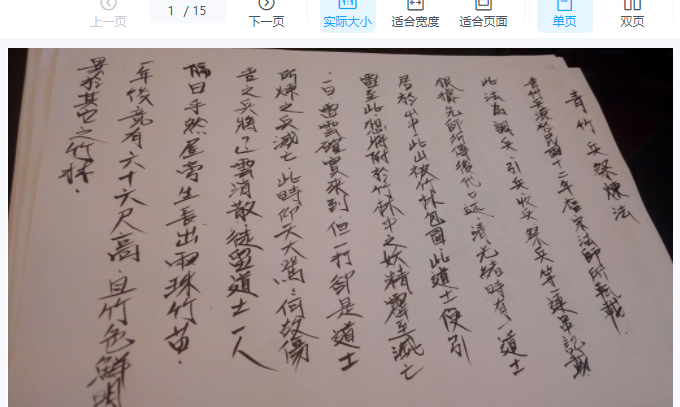 上一页
1 / 15
下一页
实际大小
适合宽度
适合页面
单页
双页
青竹兵祭煉法
青竹兵源於民國十二年 宋法師所記載.
此法為調兵、引兵、收兵、祭兵等連串記載.
根據先師所傳後代口述.清光緒時有一道士
居於山中.此山被竹林包圍.此道士便引
雷至此.想將附於竹林中之妖精靈至滅亡
一日雷雲確實來到.但一打卻是道士
所煉之兵滅亡 此時仰天大罵.何故傷
吾之兵將 雲消散 徒留道士一人
隔日 然屋旁生長出兩珠竹苗.
年後竟有六十六尺高.且竹色鮮明
異於其它之竹林.